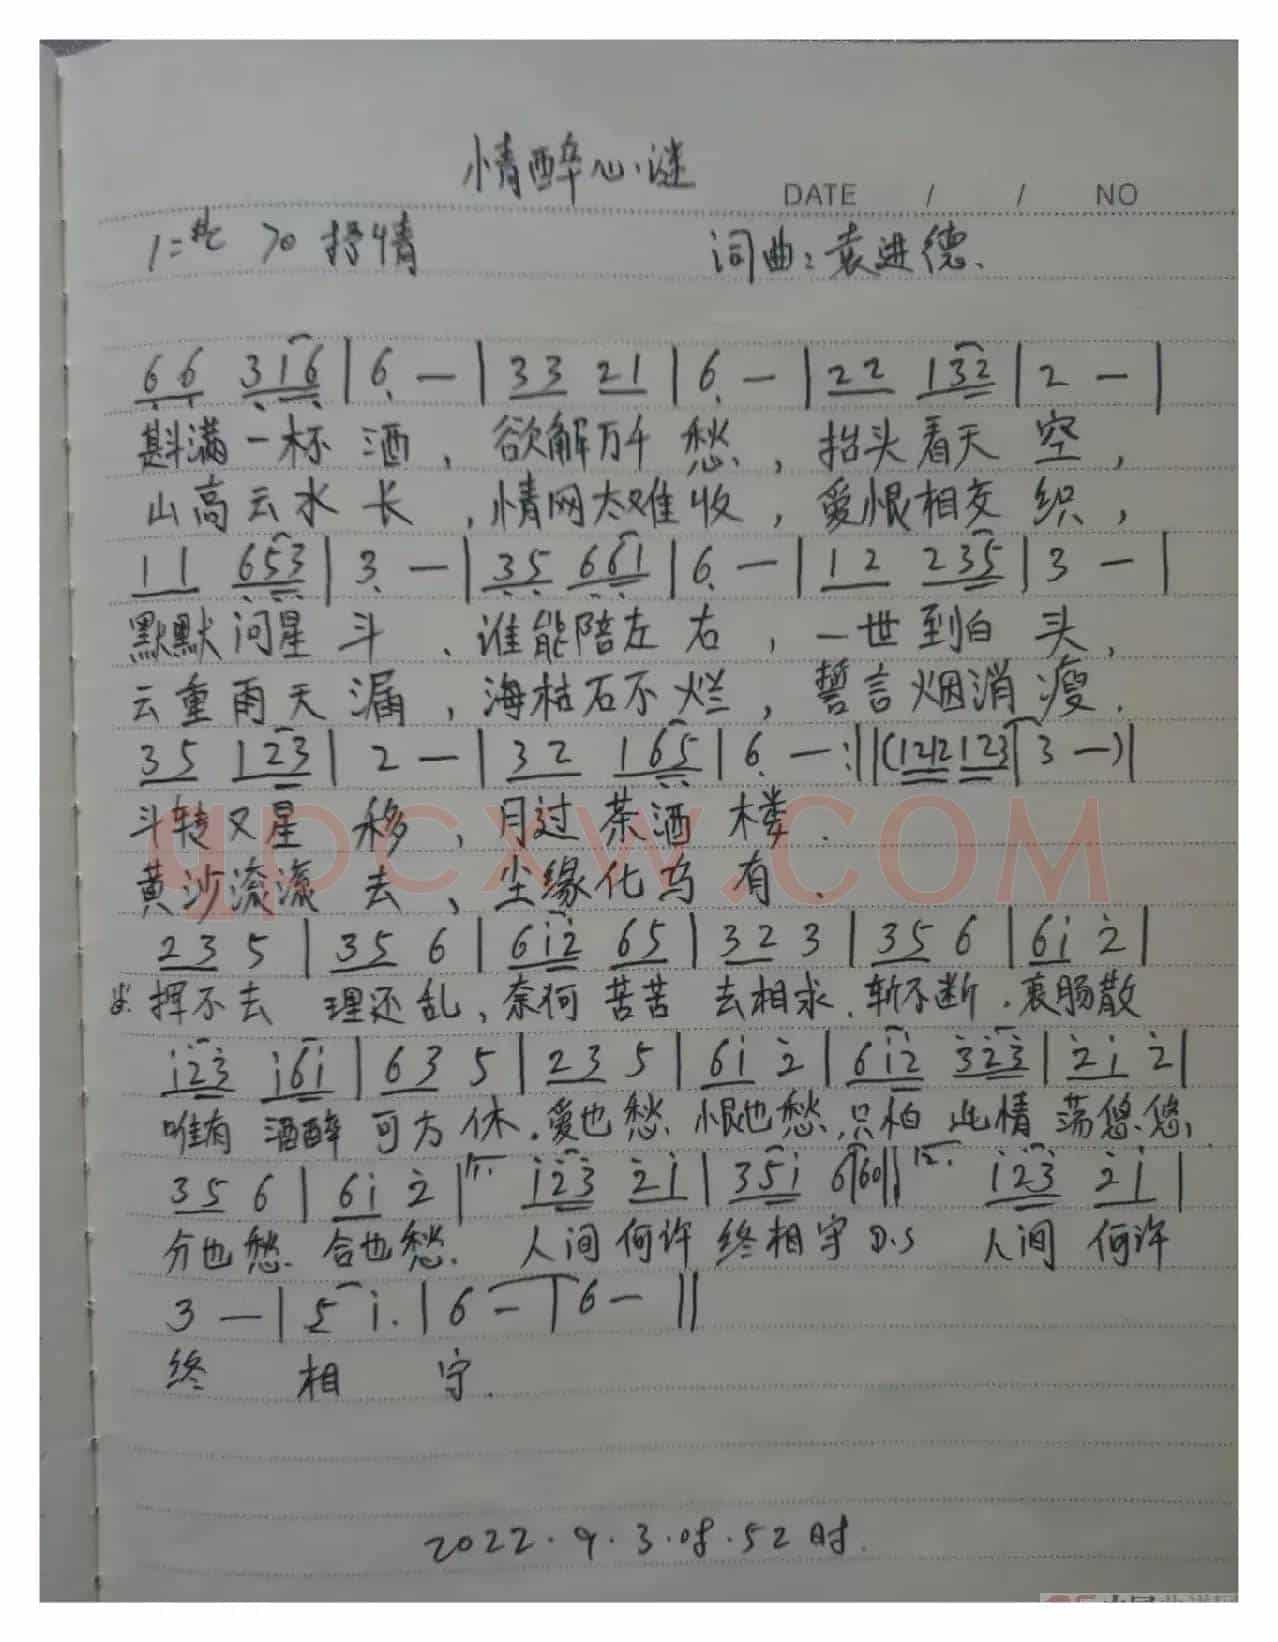 情醉心谜
DATE / / NO
1=#C 70 抒情 词曲：袁进德.
6 6 3 1 6 | 6 — | 3 3 2 1 | 6 — | 2 2 1 3 2 | 2 — |
斟满一杯 酒，欲解万千 愁，抬头看天 空，
山高云水 长，情网太难收，爱恨相交 织，
1 1 6 5 3 | 3 — | 3 5 6 6 1 | 6 — | 1 2 2 3 5 | 3 — |
默默问星 斗、谁能陪左 右，一世到白 头，
云重雨天 漏，海枯石不 烂，誓言烟消 瘦.
3 5 1 2 3 | 2 — | 3 2 1 6 5 | 6 — :|| (1212 123 | 3 —) |
斗转又星 移，月过茶酒 楼.
黄沙滚滚 去，尘缘化乌 有.
2 3 5 | 3 5 6 | 6 i 2 6 5 | 3 2 3 | 3 5 6 | 6 i 2 |
挥不去 理还乱，奈何 苦苦 去相求.斩不断.衷肠散
i 2 3 i 6 i | 6 3 5 | 2 3 5 | 6 i 2 | 6 i 2 3 2 3 | 2 i 2 |
唯有 酒醉 可方休.爱也愁.恨也愁,只怕 此情 荡悠悠,
3 5 6 | 6 i 2 | 1. i 2 3 2 i | 3 5 i 6 | 60 || 2. i 2 3 2 i |
分也愁.合也愁. 人间 何许 终相守 D.S 人间 何许
3 — | 5 i. | 6 — | 6 — ||
终 相 守.
2022.9.3.08.52时.